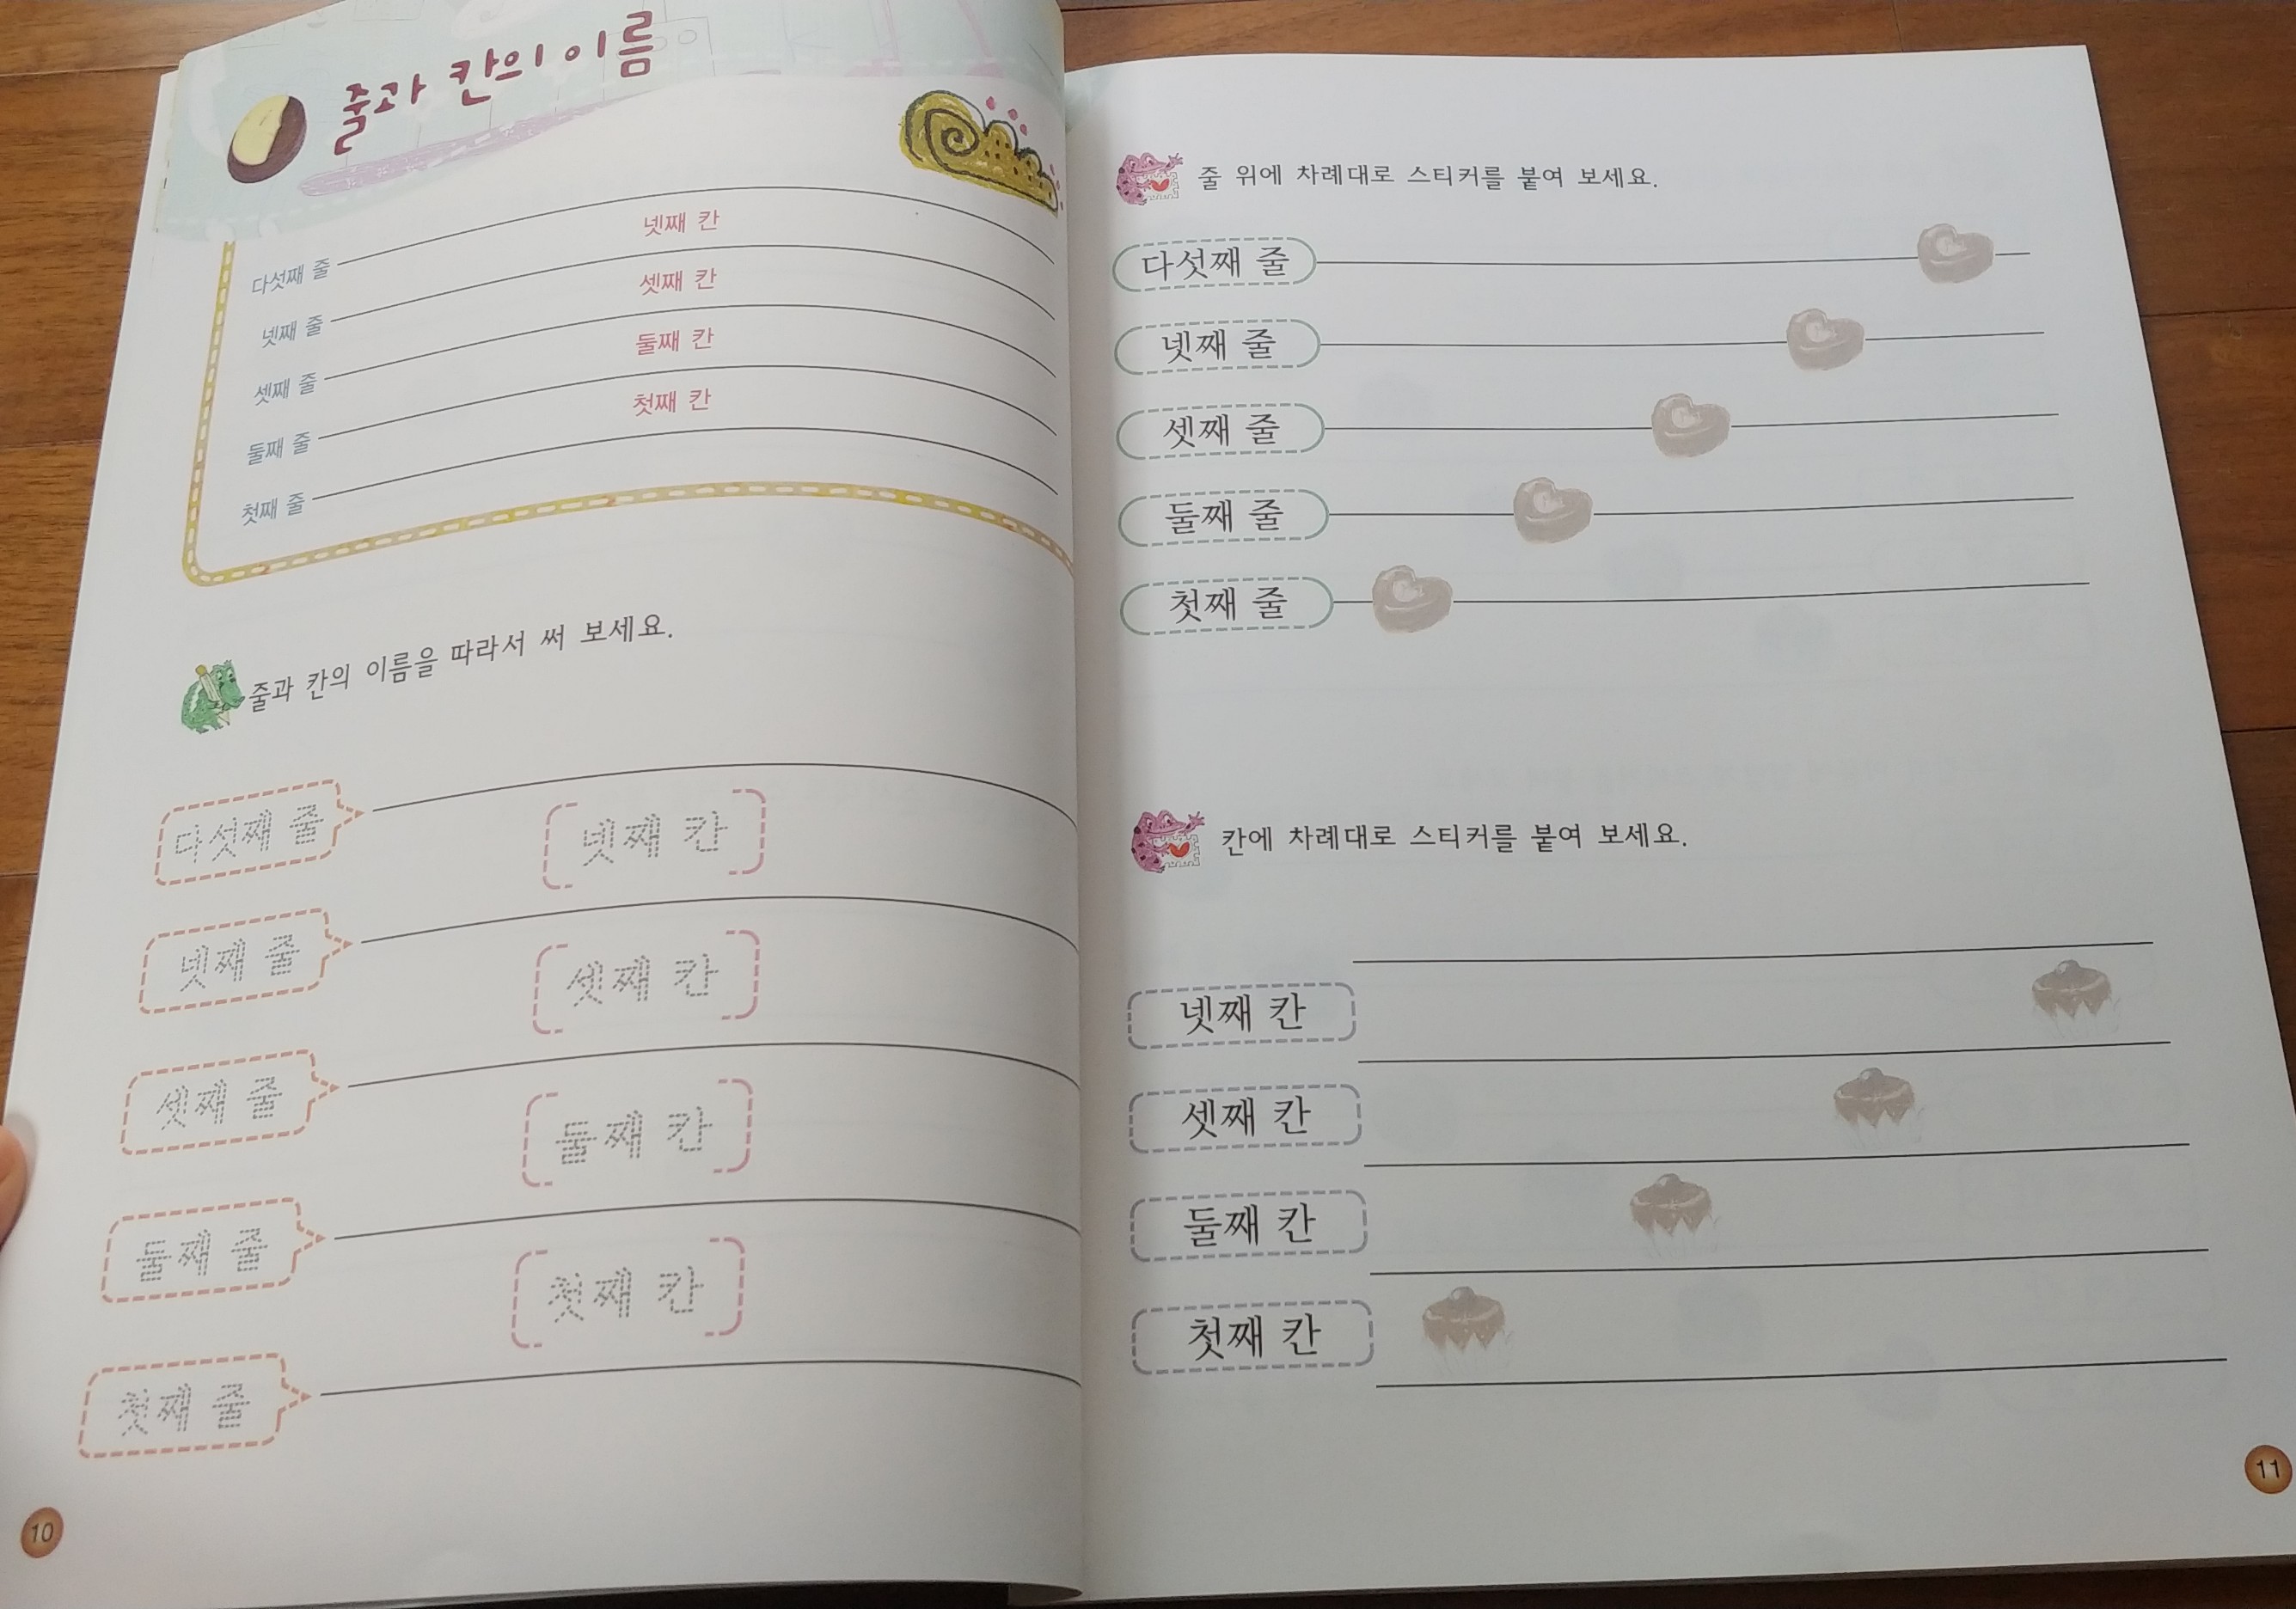 줄과 칸의 이름
넷째 칸
다섯째 줄
셋째 칸
넷째 줄
둘째 칸
셋째 줄
첫째 칸
둘째 줄
첫째 줄
줄과 칸의 이름을 따라서 써 보세요.
다섯째 줄
넷째 칸
넷째 줄
셋째 칸
셋째 줄
둘째 칸
둘째 줄
첫째 칸
첫째 줄
10
줄 위에 차례대로 스티커를 붙여 보세요.
다섯째 줄
넷째 줄
셋째 줄
둘째 줄
첫째 줄
칸에 차례대로 스티커를 붙여 보세요.
넷째 칸
셋째 칸
둘째 칸
첫째 칸
11